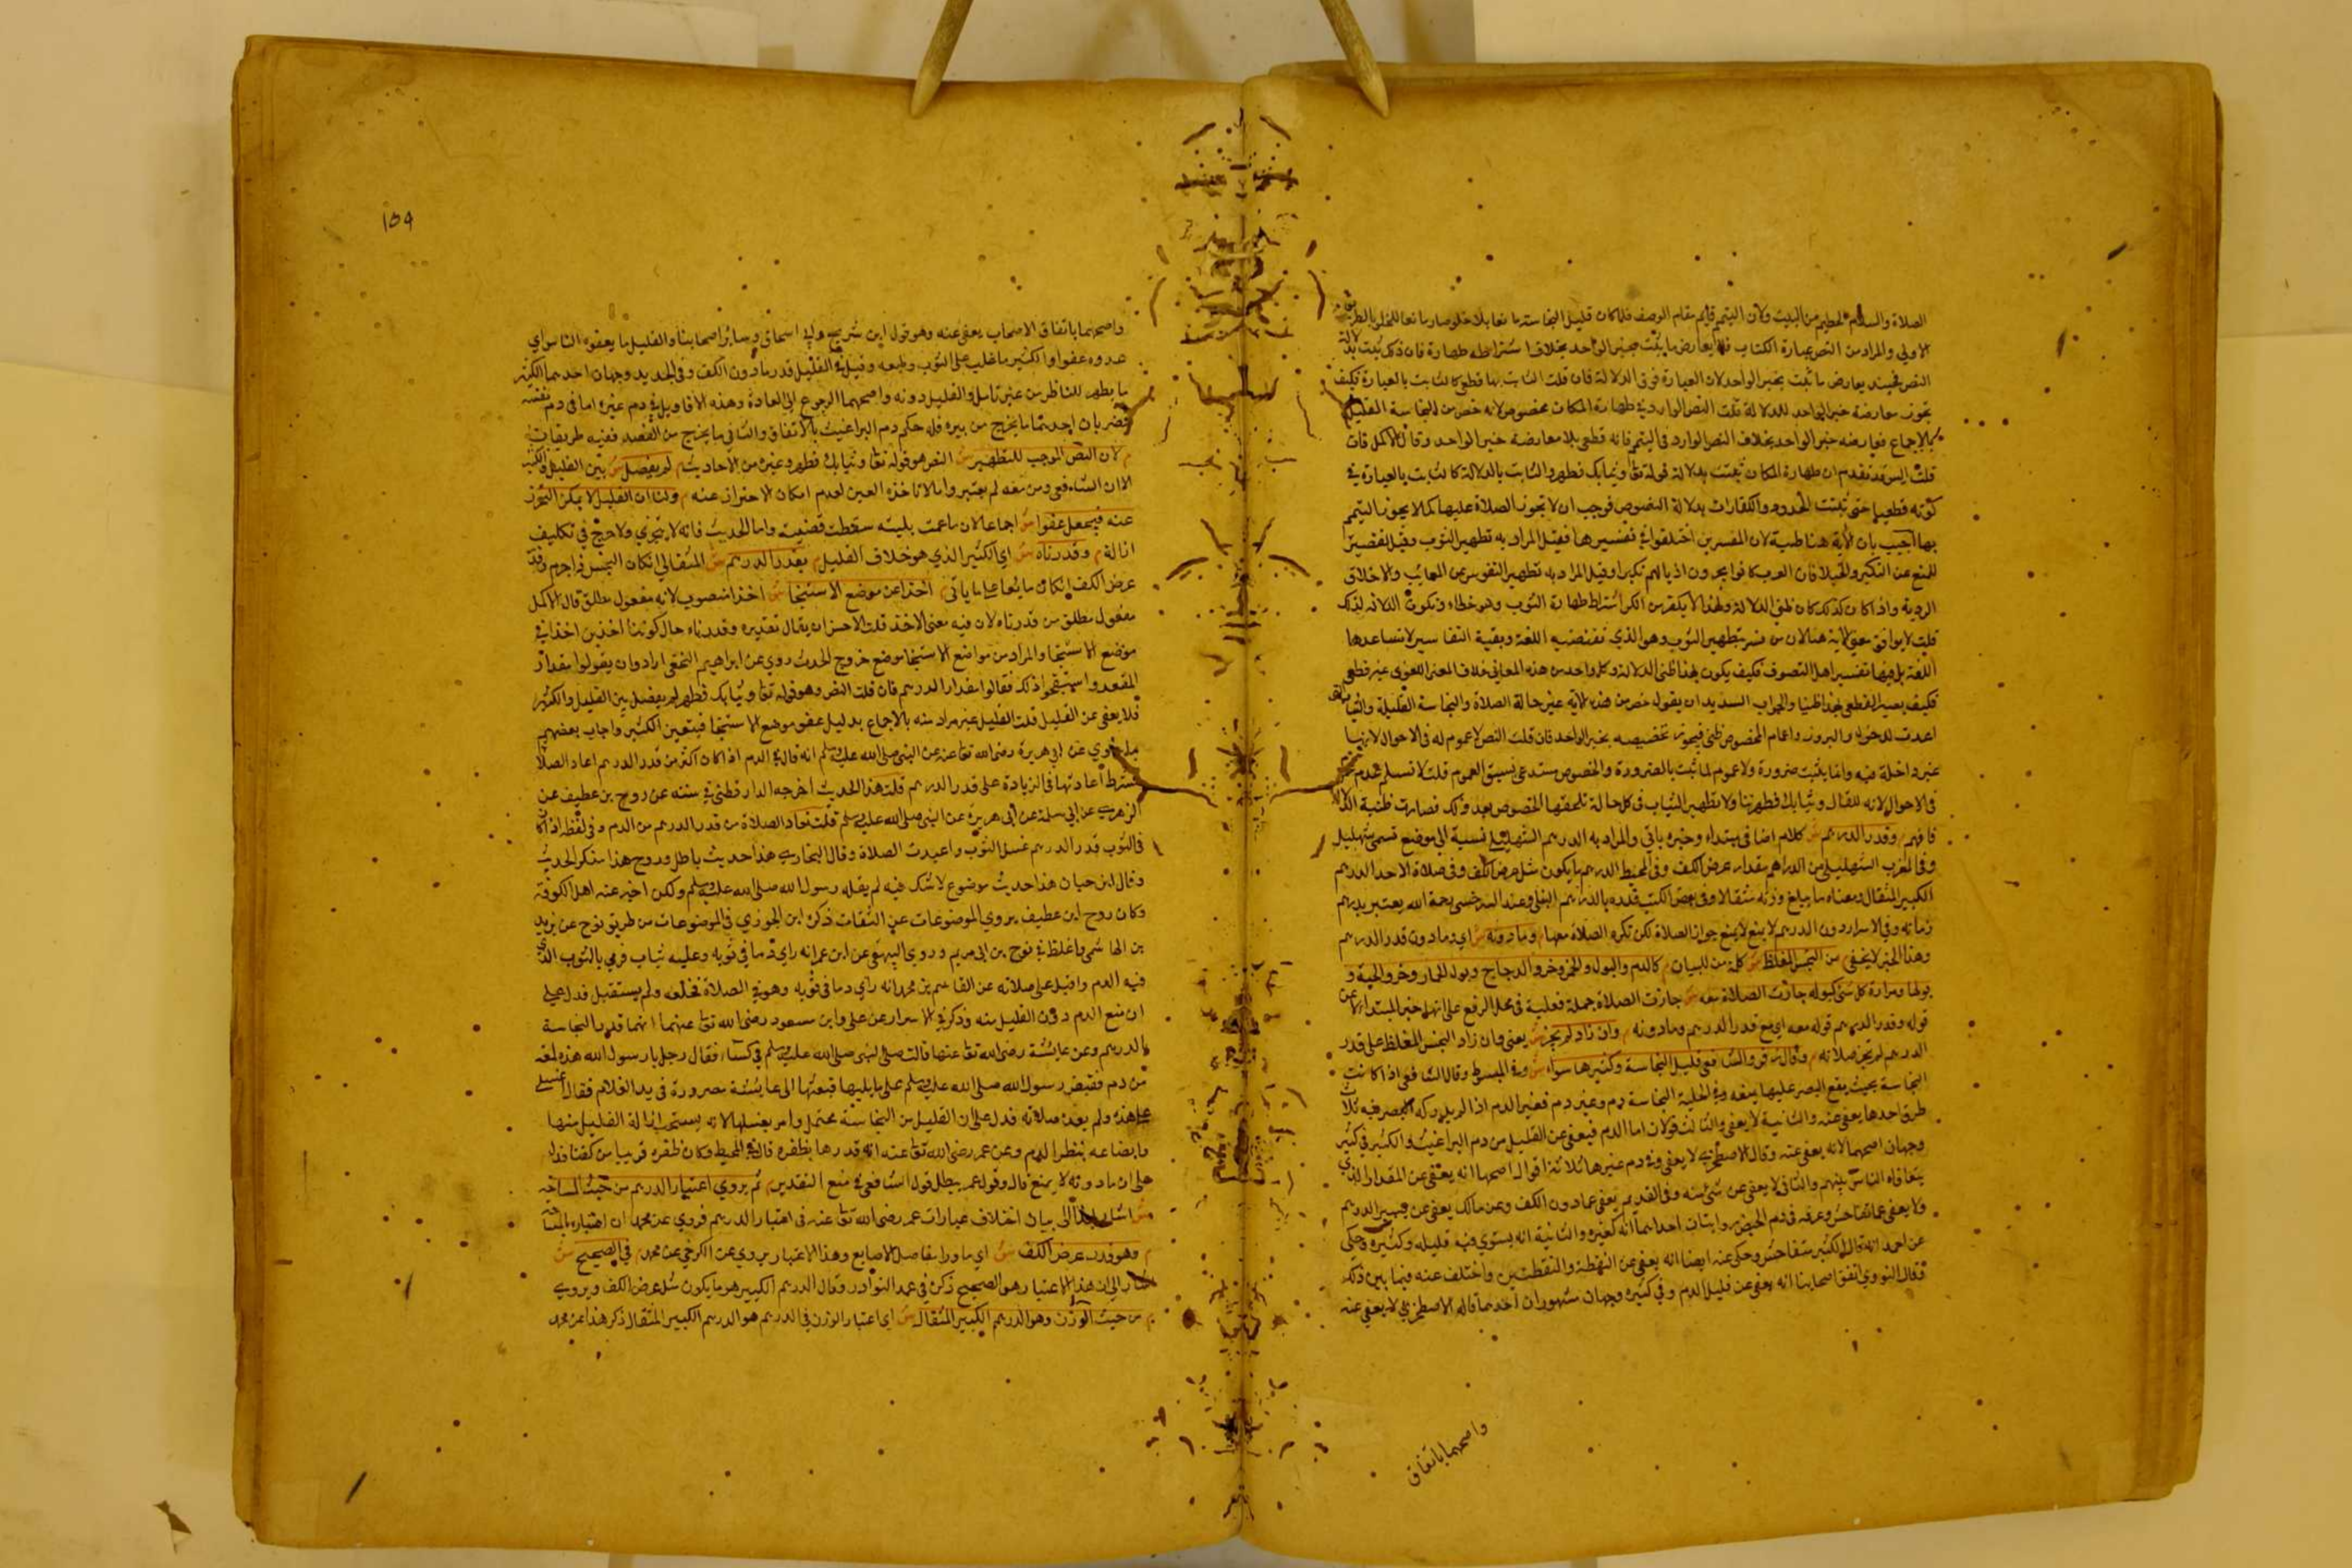 الصلاة والسلام الحطيم من البيت ولان التيمم قايم مقام الوصف فلما كان قليل النجاسة مانعا بلا خلو صار مانعا للخلو بالطريق
الاولى والمراد من النص عبارة الكتاب فلا يعارض ما يثبت بخبر الواحد بخلاف اشتراط طهارة فان ذلك ثبت بدلالة
النص فحينئذ يعارض ما ثبت بخبر الواحد لان العبارة فوق الدلالة فان قلت الثابت بها قطعي كالثابت بالعبارة فكيف
يجوز معارضة خبر الواحد للدلالة قلت النص الوارد في طهارة المكان مخصوص لانه خص من النجاسة القليل
بالاجماع فيعارضه خبر الواحد بخلاف النص الوارد في التيمم فانه قطعي بلا معارضة خبر الواحد وقال الاكمل فان
قلت اليس قد تقدم ان طهارة المكان ثبتت بدلالة قوله تعا وثيابك فطهر والثابت بالدلالة كالثابت بالعبارة في
كونه قطعيا حتى ثبتت الحدود والكفارات بدلالة النصوص فوجب ان لا تجوز الصلاة عليها كما لا يجوز التيمم
بها اجيب بان الآية هنا ظنية لان المفسرين اختلفوا في تفسيرها فقيل المراد به تطهير الثوب وقيل تقصير
للمنع عن التكبر والخيلا فان العرب كانوا يجرون اذيالهم تكبرا وقيل المراد به تطهير النفوس من المعائب والاخلاق
الردية واذا كان كذلك كان ظني الدلالة ولهذا لا يكفر من انكر اشتراط طهارة الثوب وهو خطاء وتكون الثلاثة لذلك
قلت لا يوافق معنى الآية هنا لان من فسر بتطهير الثوب وهو الذي تقتضيه اللغة وبقية التفاسير لا تساعدها
اللغة بل فيها تفسير اهل التصوف فكيف يكون هذا ظني الدلالة وكل واحد من هذه المعاني خلاف المعنى اللغوي غير قطعي
فكيف يصير القطعي بهذا ظنيا والجواب السديد ان يقول خص من هذه الآية غير حالة الصلاة والنجاسة القليلة والثياب التي
اعدت للدخول والبروز والعام المخصوص ظني فيجوز تخصيصه بخبر الواحد فان قلت النص لا عموم له في الاحوال لانها
غير داخلة فيه وانما يثبت ضرورة ولا عموم لما ثبت بالضرورة والخصوص يستدعي سبق العموم قلت لا نسلم عدم
في الاحوال لانه لو قال وثيابك فطهرتها ولا تطهير الثياب في كل حالة تلحقها الخصوص بعد ذلك فصارت ظنية الدلالة
فافهم م وقدر الدرهم ش كلام اضافي مبتداء وخبره ياتي والمراد به الدرهم الشهليلي نسبة الى موضع تسمى شهليل
وفي المغرب الشهليلي من الدراهم مقدار عرض الكف وفي المحيط الدرهم ما يكون مثل عرض الكف وفي صلاة الاصل الدرهم
الكبير المثقال ومعناه ما يبلغ وزنه مثقالا وفي بعض الكتب قدره بالدرهم البغلي وعند السرخسي رحمة الله يعتبر بدرهم
زمانه وفي الاسرار دون الدرهم لا يمنع جواز الصلاة لكن تكره الصلاة معها م وما دونه ش اي وما دون قدر الدرهم
وهذا الخبر لا يخفى م من النجس المغلظ ش كلمة من للبيان م كالدم والبول والخمر وخرو الدجاج وبول الحمار وخرو الحية و
بولها ومرارة كل شي كبوله جازت الصلاة معه ش جازت الصلاة جملة فعلية في محل الرفع على انها خبر المبتدا اعني
قوله وقدر الدرهم قوله معه اي مع قدر الدرهم وما دونه م وان زاد لم يجز ش يعني وان زاد النجس المغلظ على قدر
الدرهم لم تجز صلاته م وقال زفر والشافعي قليل النجاسة وكثيرها سواء ش وفي المبسوط وقال الشافعي اذا كانت
النجاسة بحيث يقع البصر عليها يمنعه وفي الحلية النجاسة دم وغير دم فغير الدم اذا لم يدركه البصر فيه ثلاث
طرق احدها يعفى عنه والثانية لا يعفى والثالث قولان اما الدم فيعفى عن القليل من دم البراغيث والكثير في كثير
وجهان اصحهما انه يعفى عنه وقال الاصطخري لا يعفى وفي دم غيرها ثلاثة اقوال اصحها انه يعفى عن المقدار الذي
يتعافاه الناس بينهم والثاني لا يعفى عن شي منه وفي القديم يعفى عما دون الكف وعن مالك يعفى عن قدر الدرهم
ولا يعفى عما تفاحش وعنه في دم الحيض روايتان احداهما انه كغيره والثانية انه يستوي فيه قليله وكثيره وحكي
عن احمد انه قال الكثير متفاحش وحكي عنه ايضا انه يعفى عن النقطة والنقطتين واختلف عنه فيما بين ذلك
فقال النووي اتفق اصحابنا انه يعفى عن قليل الدم وفي كثيره وجهان مشهوران احدهما قاله الاصطخري لا يعفى عنه
واصحهما باتفاق
١٥٩
واصحهما باتفاق الاصحاب يعفى عنه وهو قول ابن شريح وابي اسحاق وسائر اصحابنا والقليل ما يعفوه الناس اي
عدوه عفوا والكثير ما غلب على الثوب وطبعه وقيل في القليل قدر ما دون الكف وفي الجديد وجهان احدهما الكثير
ما يظهر للناظر من غير تامل والقليل دونه واصحهما الرجوع الى العادة وهذه الاقاويل في دم غيره اما في دم نفسه
فضربان احدهما ما يخرج من بثره فله حكم دم البراغيث بالاتفاق والثاني ما يخرج من الفصد ففيه طريقان
م لان النص الموجب للتطهير ش النص هو قوله تعا وثيابك فطهر وغيره من الاحاديث م لم يفصل ش بين القليل والكثير
الا ان الشافعي ومن معه لم يعتبروا ما لا تاخذه العين لعدم امكان الاحتراز عنه م ولنا ان القليل لا يمكن التحرز
عنه فيجعل عفوا ش اجماعا لان ما عمت بليته سقطت قضيته واما الحدث فانه لا يتجزي ولا حرج في تكليف
ازالة م وقدرناه ش اي الكثير الذي هو خلاف القليل م بقدر الدرهم ش المثقالي ان كان النجس ذا جرم وقدر
عرض الكف ان كان مائعا على ما ياتي م اخذا عن موضع الاستنجا ش اخذا منصوب لانه مفعول مطلق قال الاكمل
مفعول مطلق من قدرناه لان فيه معنى الاخذ قلت الاحسن ان يقال تقديره وقدرناه حال كوننا اخذين اخذا في
موضع الاستنجا والمراد من مواضع الاستنجا موضع خروج الحدث روي عن ابراهيم النخعي ارادوان يقولوا مقدار
المقعد واستقبحوا ذلك فقالوا مقدار الدرهم فان قلت النص وهو قوله تعا وثيابك فطهر لم يفصل بين القليل والكثير
فلا يعفى عن القليل قلت القليل غير مراد منه بالاجماع بدليل عفو موضع الاستنجا فيتعين الكثير واجاب بعضهم
بما روي عن ابي هريرة رضى الله تعا عنه عن النبى صلى الله عليه وسلم انه قال في الدم اذا كان اكثر من قدر الدرهم اعاد الصلاة
شرط اعادتها في الزيادة على قدر الدرهم قلت هذا الحديث اخرجه الدارقطني في سننه عن روح بن عطيف عن
الزهري عن ابي سلمة عن ابي هريرة عن النبى صلى الله عليه وسلم قلت تعاد الصلاة من قدر الدرهم من الدم وفي لفظ اذا كان
في الثوب قدر الدرهم غسل الثوب واعيدت الصلاة وقال البخاري هذا حديث باطل وروح هذا منكر الحديث
وقال ابن حبان هذا حديث موضوع لا شك فيه لم يقله رسول الله صلى الله عليه وسلم ولكن اخترعه اهل الكوفة
وكان روح ابن عطيف يروي الموضوعات عن الثقات ذكره ابن الجوزي في الموضوعات من طريق نوح عن يزيد
بن الهاشمي واغلظ في نوح بن ابي مريم وروي البيهقي عن ابن عمر انه راي دما في ثوبه وعليه ثياب فرمي بالثوب الذي
فيه الدم واقبل على صلاته عن القاسم بن محمد انه راي دما في ثوبه وهو في الصلاة فخلعه ولم يستقبل فدل على
ان منع الدم دون القليل منه وذكر في الاسرار عن علي وابن مسعود رضى الله تعا عنهما انهما قدرا النجاسة
بالدرهم وعن عايشة رضى الله تعا عنها قالت صلى النبى صلى الله عليه وسلم في كساء فقال رجل يا رسول الله هذه لمعة
من دم فقبض رسول الله صلى الله عليه وسلم على ما يليها فبعثها الى عايشة مصرورة في يد الغلام فقال اغسلي
هذه ولم يعد صلاته فدل على ان القليل من النجاسة محتمل وامر بغسلها لانه يستحب ازالة القليل منها
وايضا عه ينظر الدم وعن عمر رضى الله تعا عنه انه قدرها بظفره قال في المحيط وكان ظفره قريبا من كفنا فدل
على ان ما دونه لا يمنع قال وقول عمر يبطل قول الشافعي في منع التقدير م ثم يروي اعتبار الدرهم من حيث المساحة
ش اشار بهذا الى بيان اختلاف عبارات عمر رضى الله تعا عنه في اعتبار الدرهم فروي عن محمد ان اعتباره بالمساحة
م وهو قدر عرض الكف ش اي ما ورا مفاصل الاصابع وهذا الاعتبار يروي عن الكرخي عن محمد م في الصحيح ش
اشار الى ان هذا الاعتبار هو الصحيح ذكره في عمد النوادر وقال الدرهم الكبير هو ما يكون مثل عرض الكف ويروي
م من حيث الوزن وهو الدرهم الكبير المثقال ش اي اعتبار الوزن في الدرهم هو الدرهم الكبير المثقال ذكر هذا عن محمد